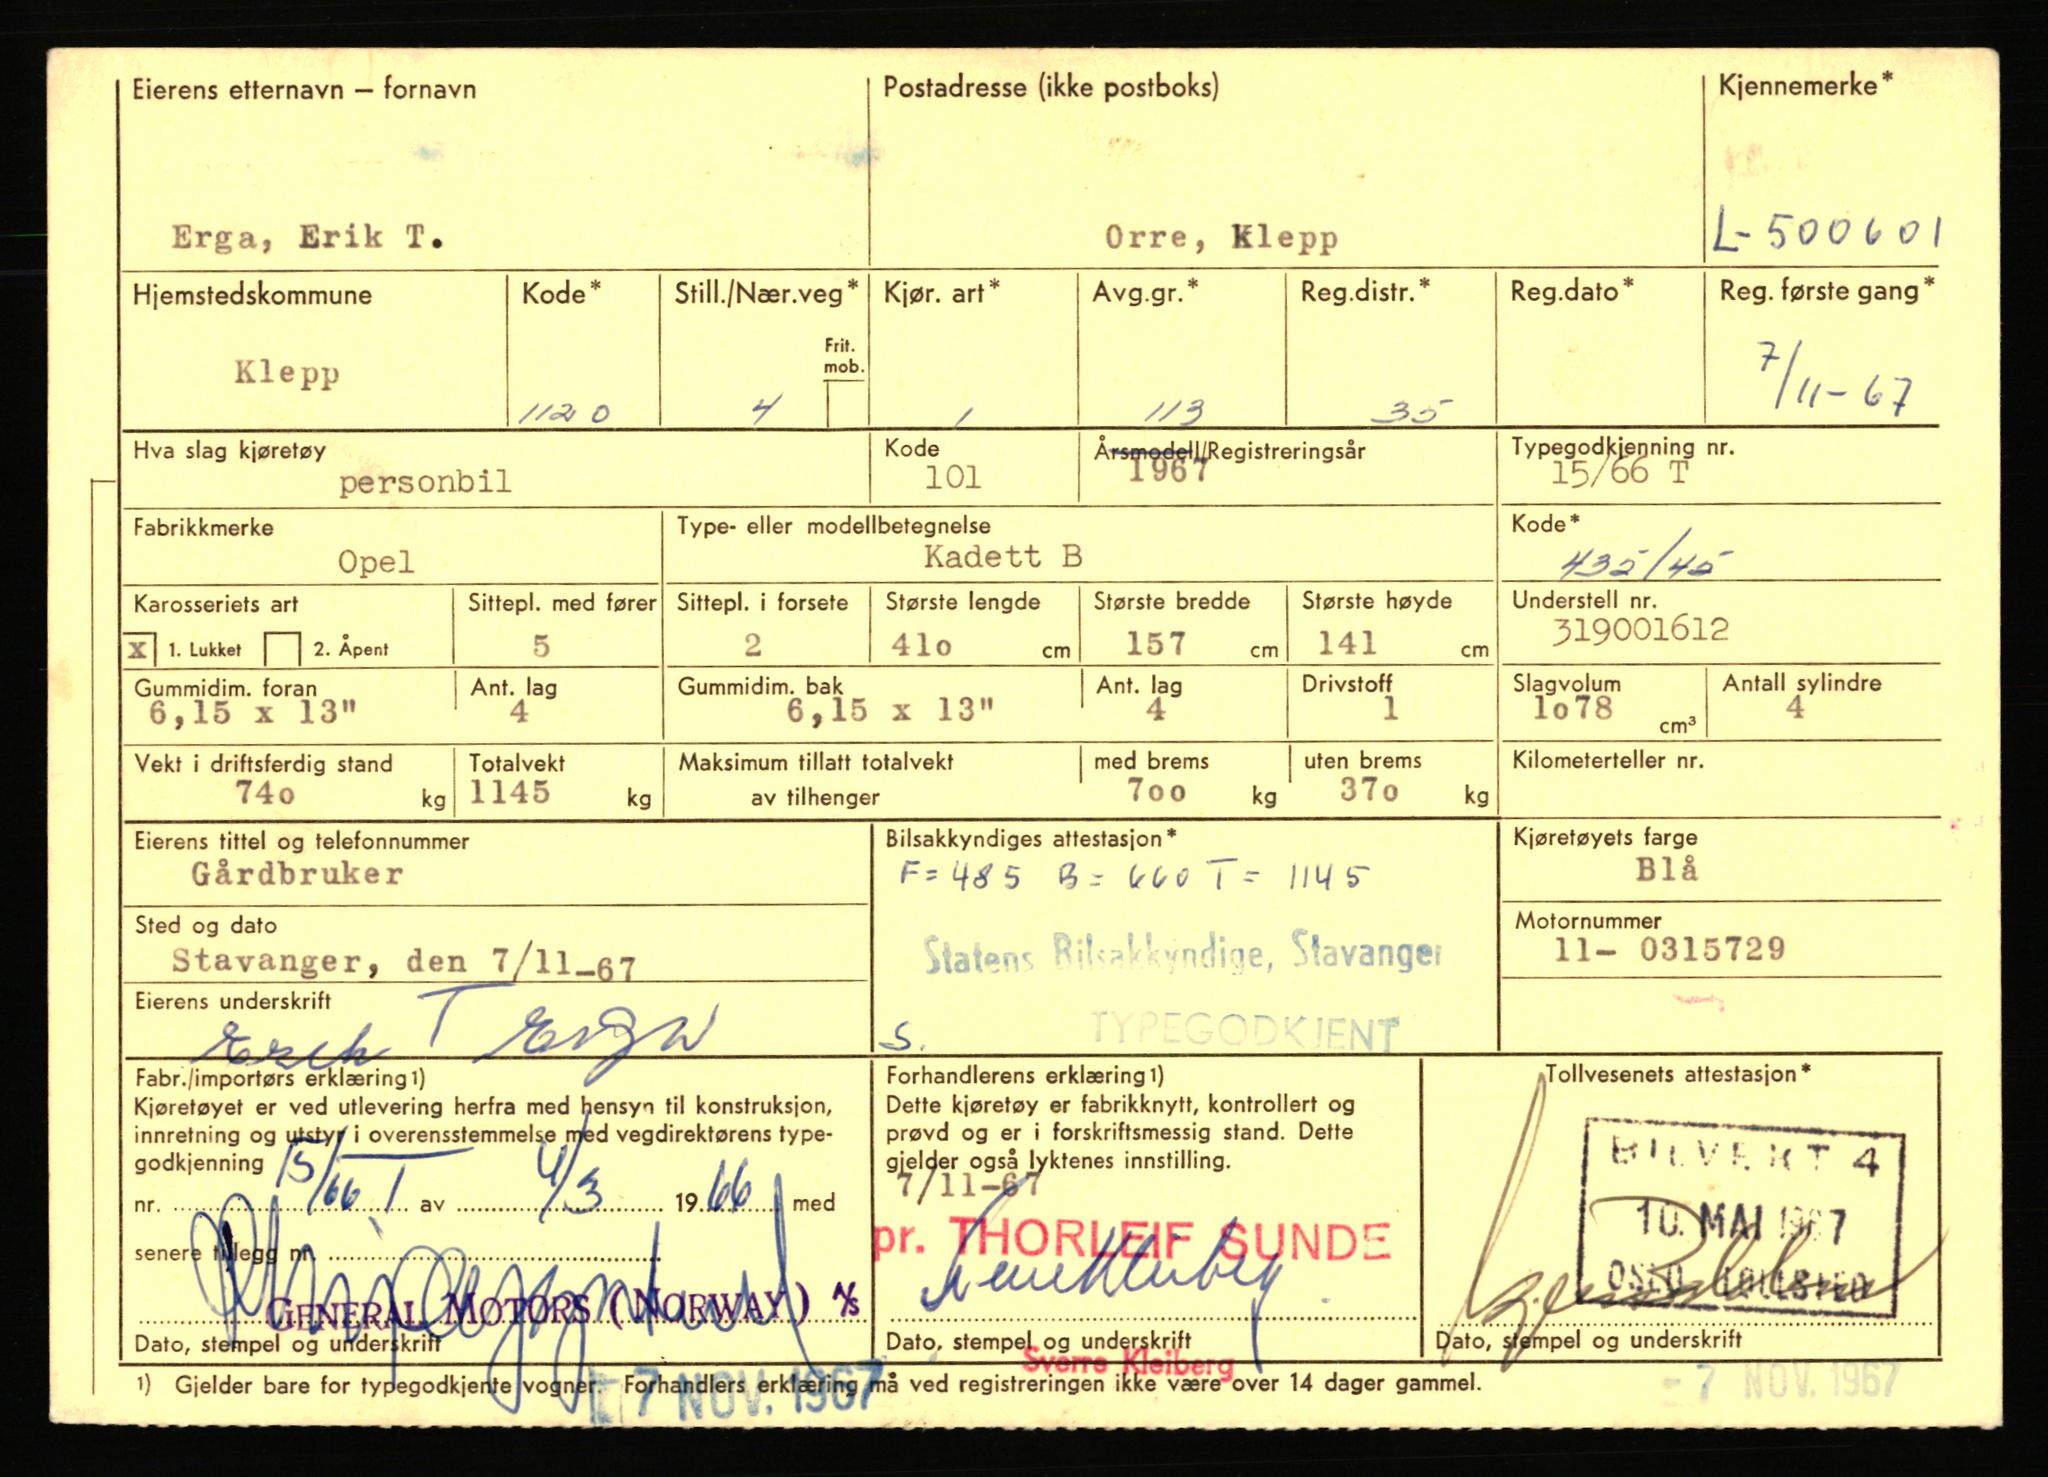 Eierens etternavn – fornavn
Erga, Erik T.
Postadresse (ikke postboks)
Orre, Klepp
Kjennemerke*
L-500601
Hjemstedskommune
Klepp
Kode*
1120
Still./Nær.veg*
Frit. mob.
4
Kjør. art*
1
Avg.gr.*
113
Reg.distr.*
35
Reg.dato*
Reg. første gang*
7/11-67
Hva slag kjøretøy
personbil
Kode
101
Årsmodell/Registreringsår
1967
Typegodkjenning nr.
15/66 T
Fabrikkmerke
Opel
Type- eller modellbetegnelse
Kadett B
Kode*
435/45
Karosseriets art
x 1. Lukket 2. Åpent
Sittepl. med fører
5
Sittepl. i forsete
2
Største lengde
41o cm
Største bredde
157 cm
Største høyde
141 cm
Understell nr.
319001612
Gummidim. foran
6,15 x 13"
Ant. lag
4
Gummidim. bak
6,15 x 13"
Ant. lag
4
Drivstoff
1
Slagvolum
1o78 cm³
Antall sylindre
4
Vekt i driftsferdig stand
74o kg
Totalvekt
1145 kg
Maksimum tillatt totalvekt
av tilhenger
med brems
7oo kg
uten brems
37o kg
Kilometerteller nr.
Eierens tittel og telefonnummer
Gårdbruker
Bilsakkyndiges attestasjon*
F = 485 B = 660 T = 1145
Statens Bilsakkyndige, Stavanger
TYPEGODKJENT
S.
Kjøretøyets farge
Blå
Sted og dato
Stavanger, den 7/11-67
Motornummer
11- 0315729
Eierens underskrift
Erik T Erga
Fabr./importørs erklæring1)
Kjøretøyet er ved utlevering herfra med hensyn til konstruksjon,
innretning og utstyr i overensstemmelse med vegdirektørens type-
godkjenning
nr. 15/66 T av 4/3 1966 med
senere tillegg nr.
GENERAL MOTORS (NORWAY) A/S
Dato, stempel og underskrift
Forhandlerens erklæring1)
Dette kjøretøy er fabrikknytt, kontrollert og
prøvd og er i forskriftsmessig stand. Dette
gjelder også lyktenes innstilling.
7/11-67
pr. THORLEIF SUNDE
Dato, stempel og underskrift
Sverre Kleiberg
Tollvesenets attestasjon*
BILVEKT 4
10. MAI 1967
OSLO TOLLSTED
Dato, stempel og underskrift
1) Gjelder bare for typegodkjente vogner. Forhandlers erklæring må ved registreringen ikke være over 14 dager gammel.
7 NOV. 1967
- 7 NOV. 1967